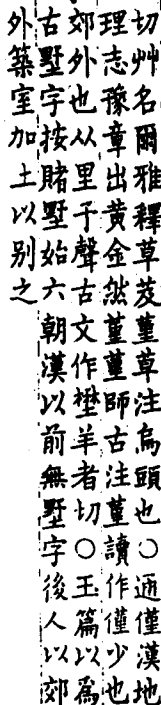 切艸名爾雅釋草芨菫草注烏頭也○通僅漢地
理志豫章出黄金然菫菫師古注菫讀作僅少也
郊外也从里予聲古文作壄羊者切○玉篇以爲
古墅字按賭墅始六朝漢以前無墅字後人以郊
外築室加土以别之